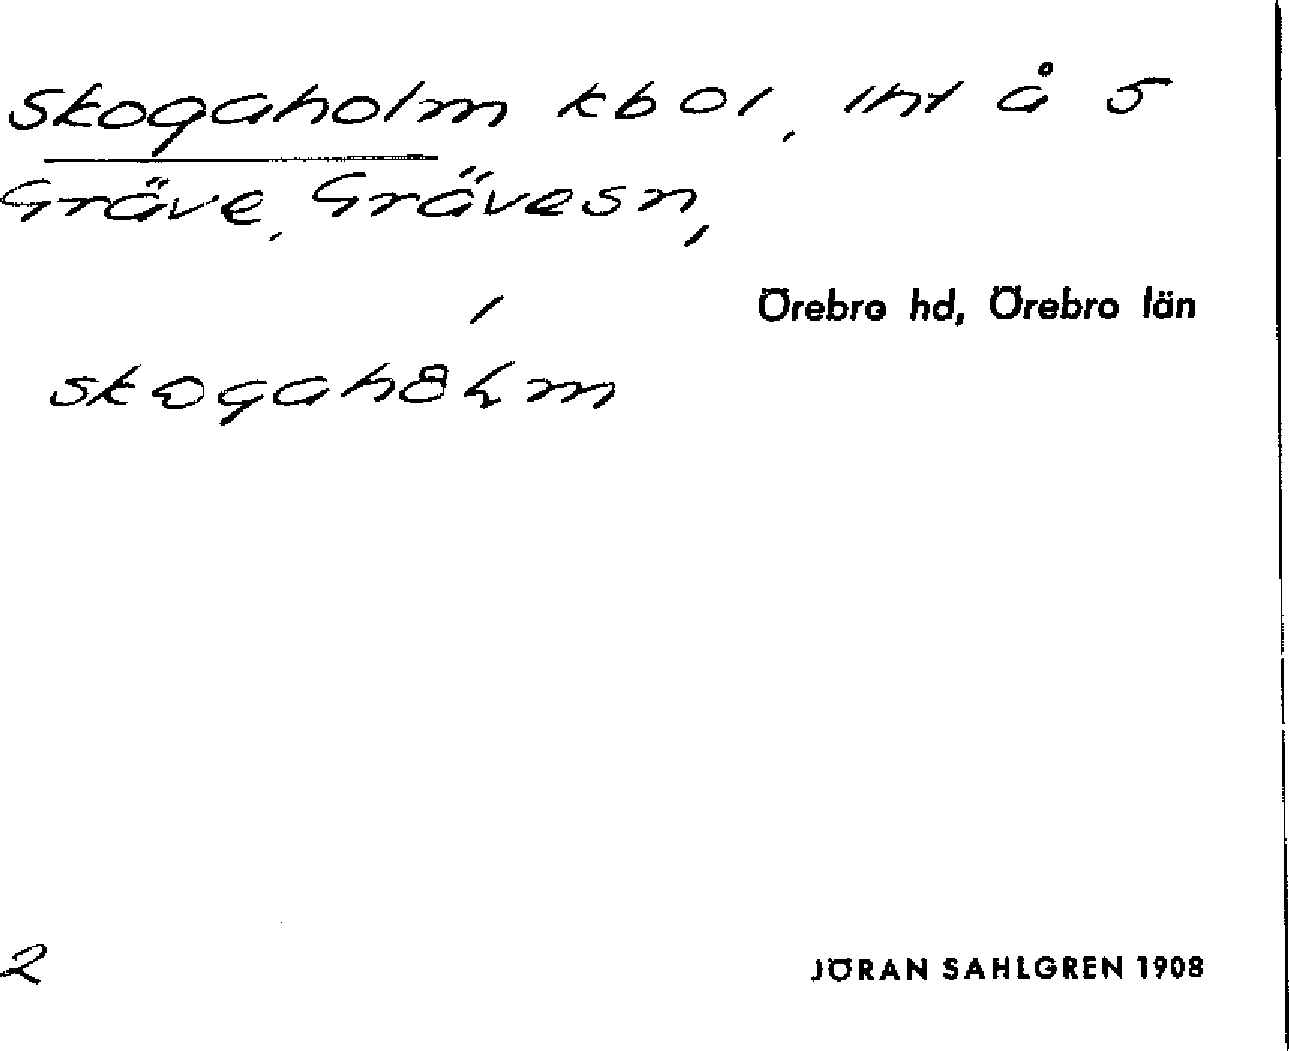 Skogaholm kbol, lht å 5
Gräve, Grävesn,
Örebro hd, Örebro län
skogahólm
2
JÖRAN SAHLGREN 1908